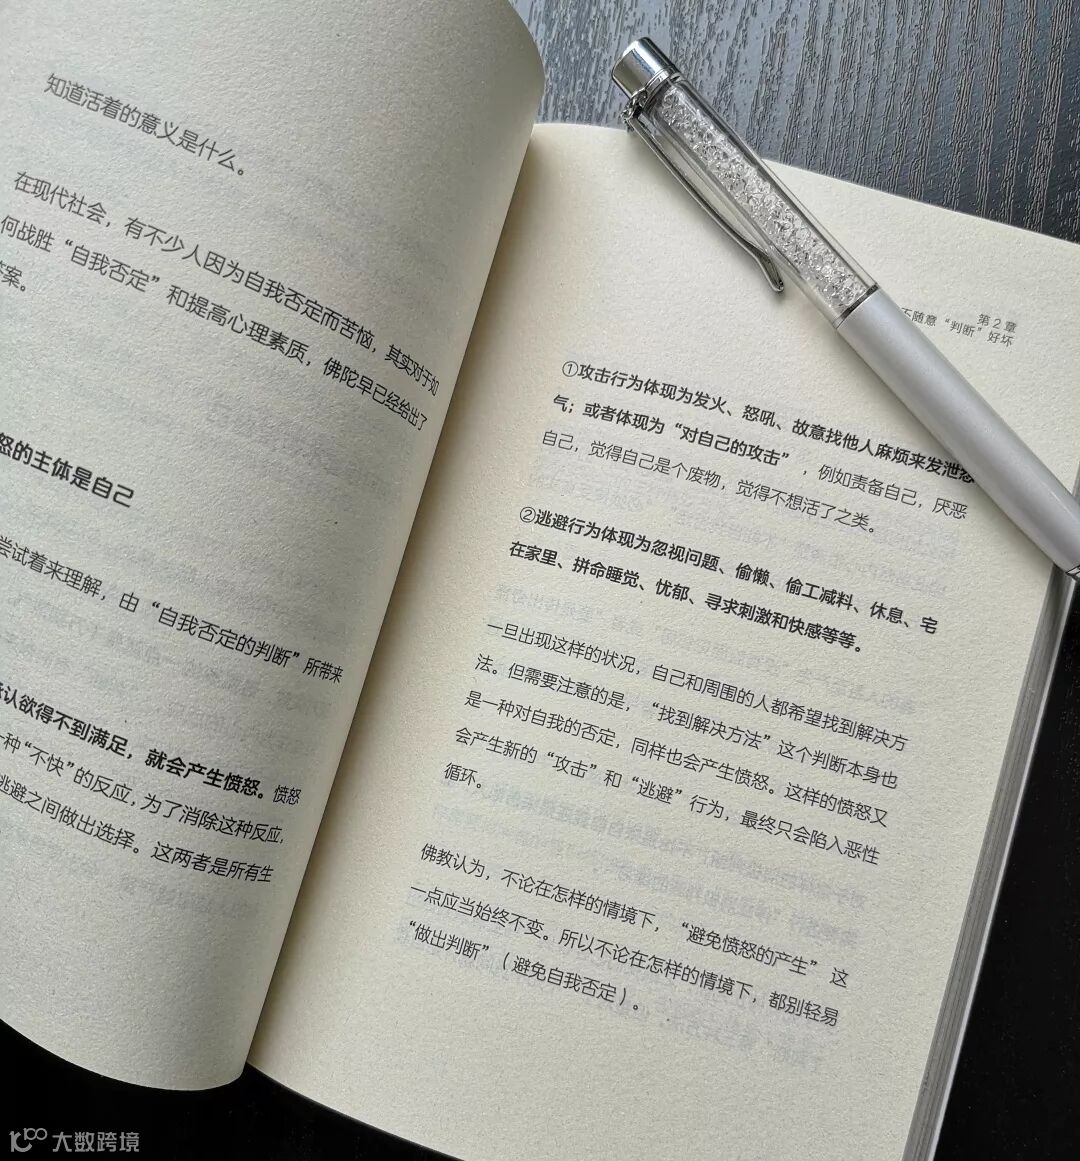 知道活着的意义是什么。
在现代社会，有不少人因为自我否定而苦恼，其实对于如
何战胜“自我否定”和提高心理素质，佛陀早已经给出了
答案。
怒的主体是自己
尝试着来理解，由“自我否定的判断”所带来
认欲得不到满足，就会产生愤怒。愤怒
一种“不快”的反应，为了消除这种反应，
逃避之间做出选择。这两者是所有生
第2章
不随意“判断”好坏
①攻击行为体现为发火、怒吼、故意找他人麻烦来发泄怒
气；或者体现为“对自己的攻击”，例如责备自己，厌恶
自己，觉得自己是个废物，觉得不想活了之类。
②逃避行为体现为忽视问题、偷懒、偷工减料、休息、宅
在家里、拼命睡觉、忧郁、寻求刺激和快感等等。
一旦出现这样的状况，自己和周围的人都希望找到解决方
法。但需要注意的是，“找到解决方法”这个判断本身也
是一种对自我的否定，同样也会产生愤怒。这样的愤怒又
会产生新的“攻击”和“逃避”行为，最终只会陷入恶性
循环。
佛教认为，不论在怎样的情境下，“避免愤怒的产生”这
一点应当始终不变。所以不论在怎样的情境下，都别轻易
“做出判断”（避免自我否定）。
大数跨境